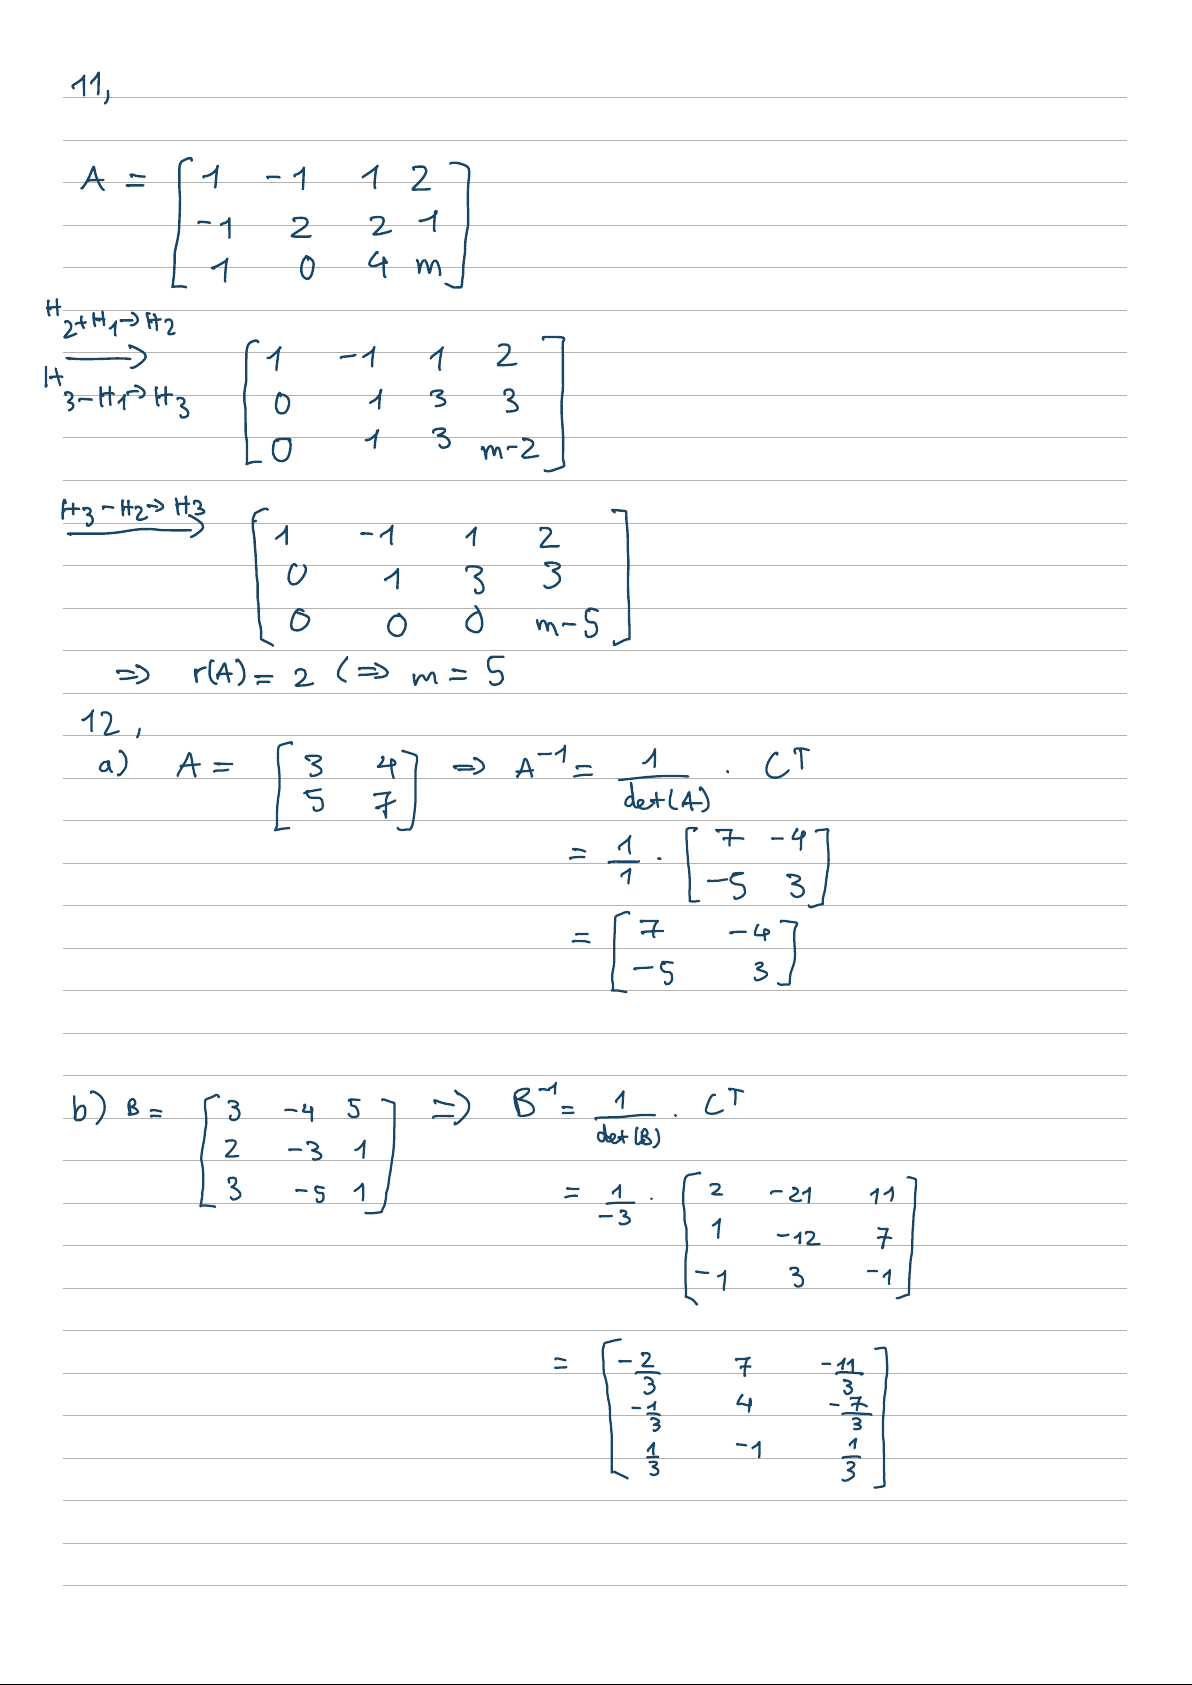 11,
A = [1 -1 1 2
-1 2 2 1
1 0 4 m]
H2+H1→H2
H3-H1→H3
[1 -1 1 2
0 1 3 3
0 1 3 m-2]
H3-H2→H3
[1 -1 1 2
0 1 3 3
0 0 0 m-5]
=> r(A) = 2 (=> m = 5
12,
a) A = [3 4
5 7] => A^-1 = 1/det(A) . CT
= 1/1 . [7 -4
-5 3]
= [7 -4
-5 3]
b) B = [3 -4 5
2 -3 1
3 -5 1] => B^-1 = 1/det(B) . CT
= 1/-3 . [2 -21 11
1 -12 7
-1 3 -1]
= [-2/3 7 -11/3
-1/3 4 -7/3
1/3 -1 1/3]